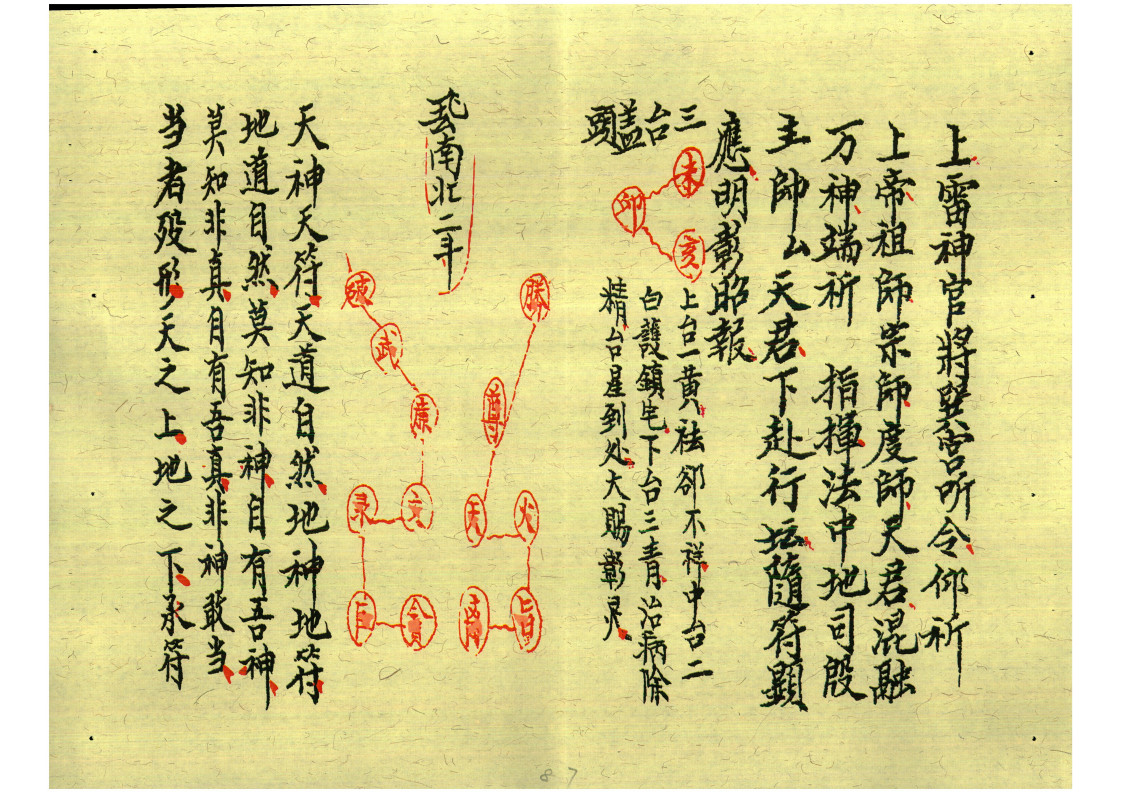 上雷神官將與吾听令仰祈
上帝祖師宗師度師天君混融
万神端祈 指揮法中地司殷
主帥厶天君下赴行坛隨符顯
應明彰昭報
三台盖頭
未
卯
亥
上台一黄祛卻不祥中台二
白護鎮宅下台三青治病除
精台星到处大賜彰灵
南北二斗
勝
尊
天
火
旨
破
武
廉
文
录
巨
貪
天神天符天道自然地神地符
地道自然莫知非神自有吾神
莫知非真自有吾真非神敢当
当者殁形天之上地之下承符
87